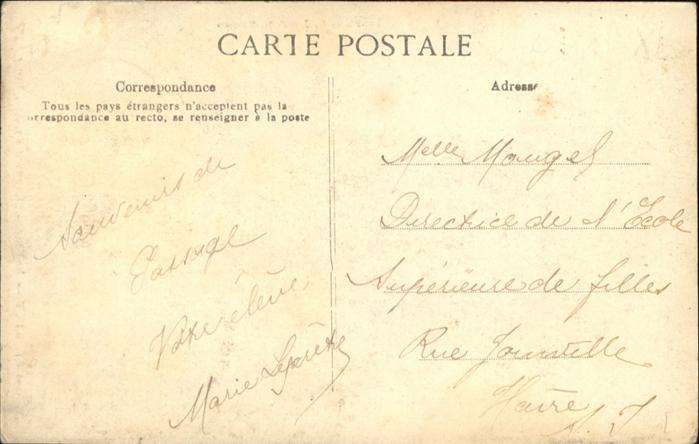 CARTE POSTALE
Correspondance
Tous les pays étrangers n'acceptent pas la
correspondance au recto, se renseigner à la poste
Souvenirs de
Passage
Votre élève
Marie
Adresse
Melle Mougel
Directice de l'Ecole
Supérieure de filles
Rue Joinville
Havre
S. I.